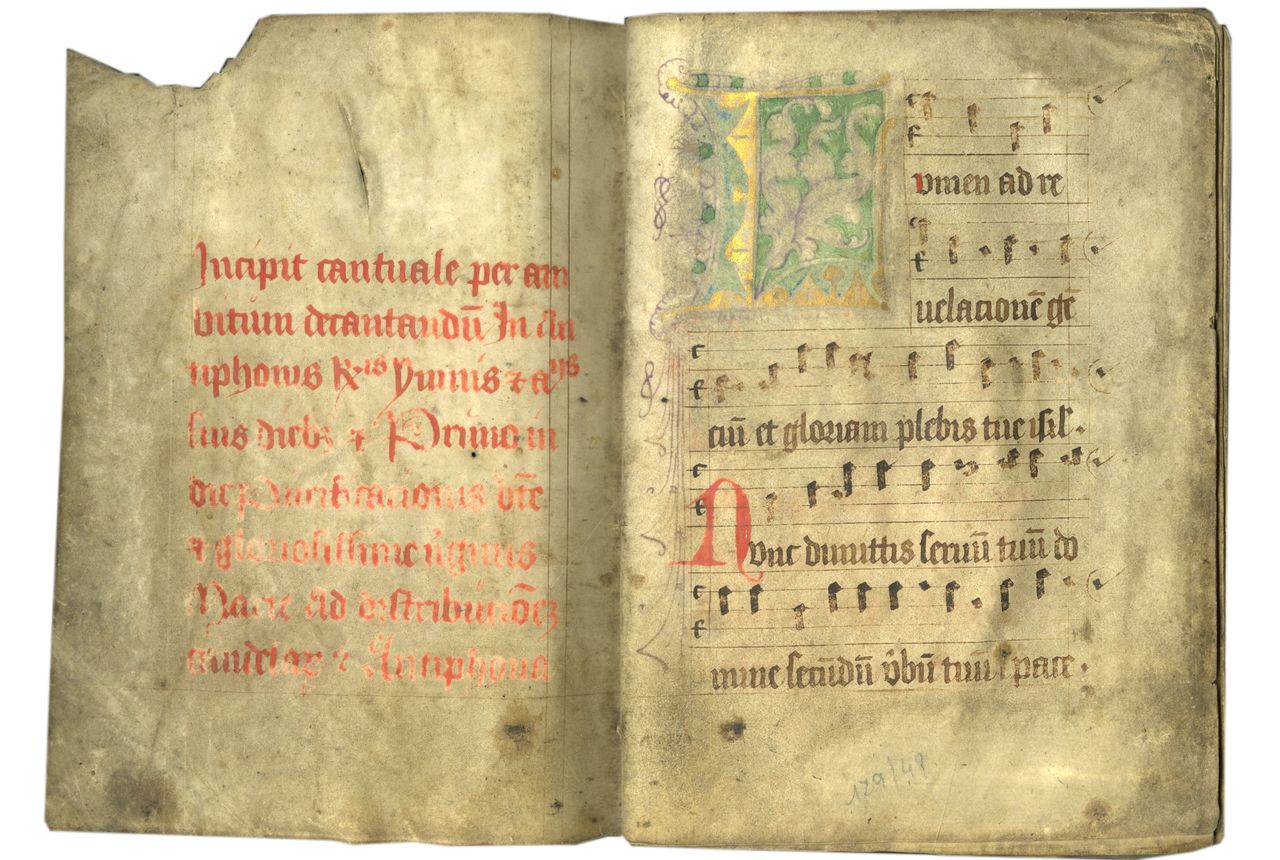 Incipit cantuale per am
bitum decantandū In An
tiphonis Rͥˢ Ymnis ⁊ aˡʸˢ
suis diebꝫ ⁊ Primo in
die Purificationis btē
⁊ gloriosissime ṽginis
Marie Ad distribucōeꝫ
candelaꝝ Antiphona
2
Lvmen ad re
uelacionē gē
ciū et gloriam plebis tue isrł.
Nvnc dimittis seruū tuū do
mine secūdū v̄bū tuū ī pace.
129/49